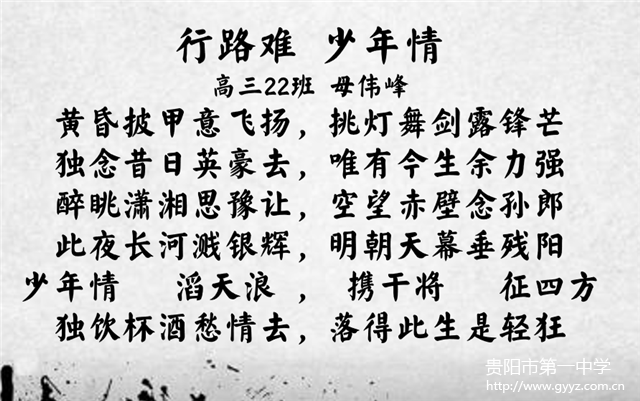 行路难 少年情
高三22班 毋伟峰
黄昏披甲意飞扬，挑灯舞剑露锋芒
独念昔日英豪去，唯有今生余力强
醉眺潇湘思豫让，空望赤壁念孙郎
此夜长河溅银辉，明朝天幕垂残阳
少年情 滔天浪 ， 携干将 征四方
独饮杯酒愁情去，落得此生是轻狂
贵阳市第一中学
http://www.gyyz.com.cn